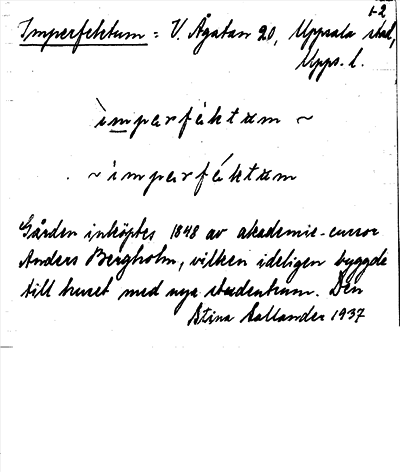 1-2
Imperfektum = V. Ågatan 20, Uppsala stad,
Uppl.
ìmperfáktum ~
~ ìmperfáktum
Gården inköptes 1848 av akademie-cursor
Anders Bergholm, vilken ideligen byggde
till huset med nya studentrum. Den
Stina Sallander 1937